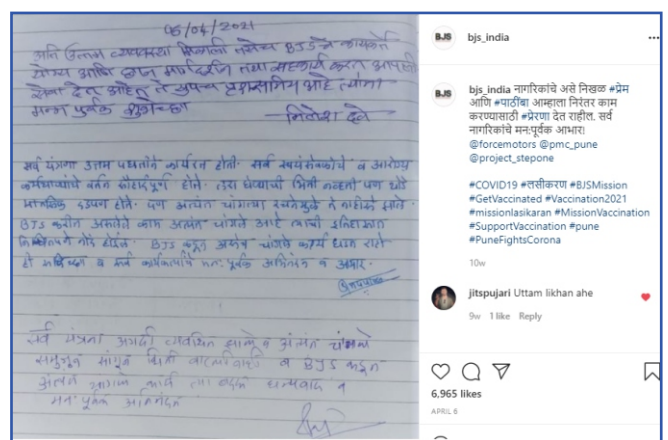 05/04/2021
अति उत्तम व्यवस्था मिळाली तसेच BJS चे कार्यकर्ते
योग्य आणि छान मार्गदर्शन तथा सहकार्य करत आपली
सेवा देत आहेत ते खुपच प्रशंसनिय आहे त्यांना
मनःपूर्वक शुभेच्छा
सर्व यंत्रणा उत्तम पद्धतीने कार्यरत होती. सर्व स्वयंसेवकांचे व आरोग्य
कर्मचाऱ्यांचे वर्तन सौहार्दपूर्ण होते. लस घेण्याची भिती नव्हती पण थोडे
मानसिक दडपण होते. पण अत्यंत चांगल्या
BJS करीत असलेले काम अत्यंत चांगले आहे त्याची इतिहासात
नोंद होईल. BJS कडून असेच चांगले कार्य घडत राहो
ही सदिच्छा व सर्व मनःपूर्वक अभिनंदन व आभार.
सर्व यंत्रणा अगदी व्यवस्थित अत्यंत चांगले
समजून सांगून भिती व BJS कडून
अत्यंत चांगले कार्य त्या बद्दल धन्यवाद व
मनःपूर्वक अभिनंदन
BJS bjs_india
BJS bjs_india नागरिकांचे असे निखळ #प्रेम
आणि #पाठींबा आम्हाला निरंतर काम
करण्यासाठी #प्रेरणा देत राहील. सर्व
नागरिकांचे मन:पूर्वक आभार!
@forcemotors @pmc_pune
@project_stepone
#COVID19 #लसीकरण #BJSMission
#GetVaccinated #Vaccination2021
#missionlasikaran #MissionVaccination
#SupportVaccination #pune
#PuneFightsCorona
10w
jitspujari Uttam likhan ahe
9w 1 like Reply
6,965 likes
APRIL 6